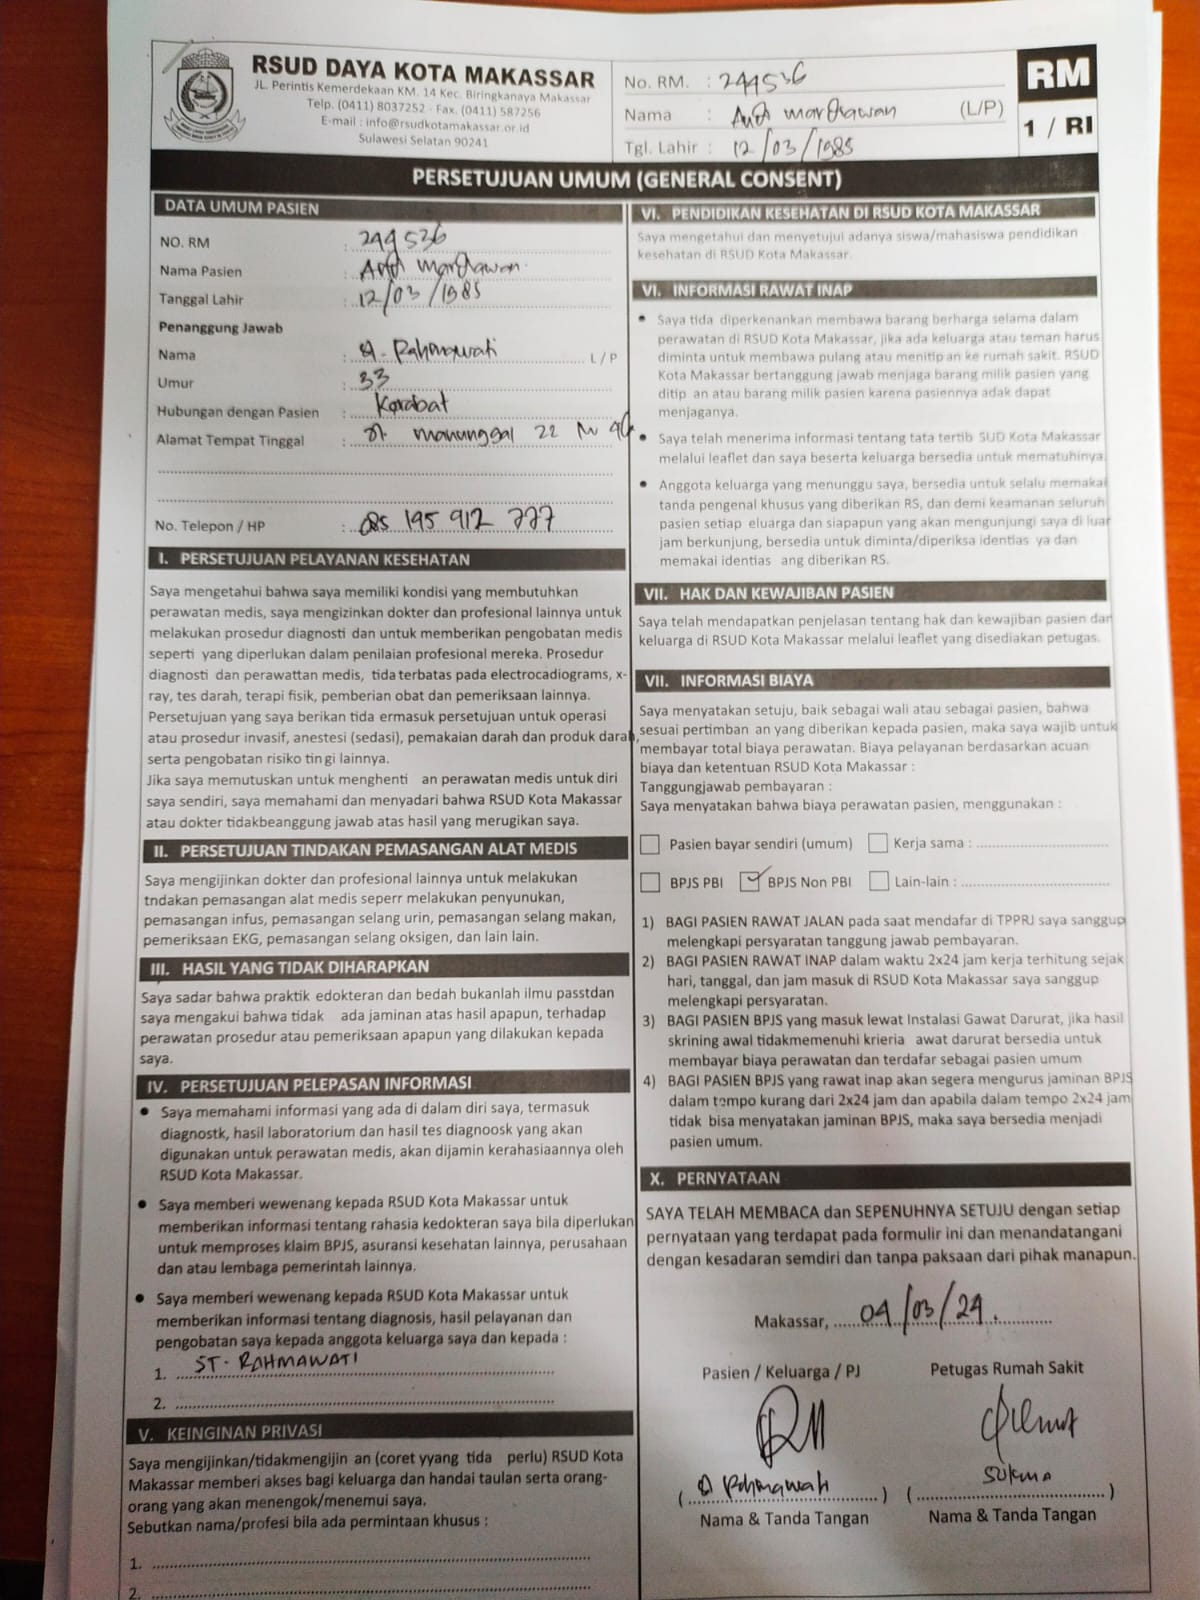 RSUD DAYA KOTA MAKASSAR
JL. Perintis Kemerdekaan KM. 14 Kec. Biringkanaya Makassar
Telp. (0411) 8037252 - Fax. (0411) 587256
E-mail : info@rsudkotamakassar.or.id
Sulawesi Selatan 90241
No. RM. : 299536
Nama : Andi Mardiawan (L/P)
Tgl. Lahir : 12/03/1985
RM
1 / RI
PERSETUJUAN UMUM (GENERAL CONSENT)
DATA UMUM PASIEN
NO. RM : 299536
Nama Pasien : Andi Mardiawan
Tanggal Lahir : 12/03/1985
Penanggung Jawab
Nama : St. Rahmawati L / P
Umur : 33
Hubungan dengan Pasien : Kerabat
Alamat Tempat Tinggal : Jl. manunggal 22
No. Telepon / HP : 085 195 912 777
I. PERSETUJUAN PELAYANAN KESEHATAN
Saya mengetahui bahwa saya memiliki kondisi yang membutuhkan
perawatan medis, saya mengizinkan dokter dan profesional lainnya untuk
melakukan prosedur diagnosti dan untuk memberikan pengobatan medis
seperti yang diperlukan dalam penilaian profesional mereka. Prosedur
diagnosti dan perawattan medis, tida terbatas pada electrocadiograms, x-
ray, tes darah, terapi fisik, pemberian obat dan pemeriksaan lainnya.
Persetujuan yang saya berikan tida ermasuk persetujuan untuk operasi
atau prosedur invasif, anestesi (sedasi), pemakaian darah dan produk darah,
serta pengobatan risiko tin gi lainnya.
Jika saya memutuskan untuk menghenti an perawatan medis untuk diri
saya sendiri, saya memahami dan menyadari bahwa RSUD Kota Makassar
atau dokter tidakbeanggung jawab atas hasil yang merugikan saya.
II. PERSETUJUAN TINDAKAN PEMASANGAN ALAT MEDIS
Saya mengijinkan dokter dan profesional lainnya untuk melakukan
tndakan pemasangan alat medis seperr melakukan penyunukan,
pemasangan infus, pemasangan selang urin, pemasangan selang makan,
pemeriksaan EKG, pemasangan selang oksigen, dan lain lain.
III. HASIL YANG TIDAK DIHARAPKAN
Saya sadar bahwa praktik edokteran dan bedah bukanlah ilmu passtdan
saya mengakui bahwa tidak ada jaminan atas hasil apapun, terhadap
perawatan prosedur atau pemeriksaan apapun yang dilakukan kepada
saya.
IV. PERSETUJUAN PELEPASAN INFORMASI
• Saya memahami informasi yang ada di dalam diri saya, termasuk
diagnostk, hasil laboratorium dan hasil tes diagnoosk yang akan
digunakan untuk perawatan medis, akan dijamin kerahasiaannya oleh
RSUD Kota Makassar.
• Saya memberi wewenang kepada RSUD Kota Makassar untuk
memberikan informasi tentang rahasia kedokteran saya bila diperlukan
untuk memproses klaim BPJS, asuransi kesehatan lainnya, perusahaan
dan atau lembaga pemerintah lainnya.
• Saya memberi wewenang kepada RSUD Kota Makassar untuk
memberikan informasi tentang diagnosis, hasil pelayanan dan
pengobatan saya kepada anggota keluarga saya dan kepada :
1. ST. RAHMAWATI
2.
V. KEINGINAN PRIVASI
Saya mengijinkan/tidakmengijin an (coret yyang tida perlu) RSUD Kota
Makassar memberi akses bagi keluarga dan handai taulan serta orang-
orang yang akan menengok/menemui saya.
Sebutkan nama/profesi bila ada permintaan khusus :
1.
2.
VI. PENDIDIKAN KESEHATAN DI RSUD KOTA MAKASSAR
Saya mengetahui dan menyetujui adanya siswa/mahasiswa pendidikan
kesehatan di RSUD Kota Makassar.
VI. INFORMASI RAWAT INAP
• Saya tida diperkenankan membawa barang berharga selama dalam
perawatan di RSUD Kota Makassar, jika ada keluarga atau teman harus
diminta untuk membawa pulang atau menitip an ke rumah sakit. RSUD
Kota Makassar bertanggung jawab menjaga barang milik pasien yang
ditip an atau barang milik pasien karena pasiennya adak dapat
menjaganya.
• Saya telah menerima informasi tentang tata tertib SUD Kota Makassar
melalui leaflet dan saya beserta keluarga bersedia untuk mematuhinya.
• Anggota keluarga yang menunggu saya, bersedia untuk selalu memakai
tanda pengenal khusus yang diberikan RS, dan demi keamanan seluruh
pasien setiap eluarga dan siapapun yang akan mengunjungi saya di luar
jam berkunjung, bersedia untuk diminta/diperiksa identias ya dan
memakai identias ang diberikan RS.
VII. HAK DAN KEWAJIBAN PASIEN
Saya telah mendapatkan penjelasan tentang hak dan kewajiban pasien dan
keluarga di RSUD Kota Makassar melalui leaflet yang disediakan petugas.
VII. INFORMASI BIAYA
Saya menyatakan setuju, baik sebagai wali atau sebagai pasien, bahwa
sesuai pertimban an yang diberikan kepada pasien, maka saya wajib untuk
membayar total biaya perawatan. Biaya pelayanan berdasarkan acuan
biaya dan ketentuan RSUD Kota Makassar :
Tanggungjawab pembayaran :
Saya menyatakan bahwa biaya perawatan pasien, menggunakan :
Pasien bayar sendiri (umum) Kerja sama :
BPJS PBI BPJS Non PBI Lain-lain :
1) BAGI PASIEN RAWAT JALAN pada saat mendafar di TPPRJ saya sanggup
melengkapi persyaratan tanggung jawab pembayaran.
2) BAGI PASIEN RAWAT INAP dalam waktu 2x24 jam kerja terhitung sejak
hari, tanggal, dan jam masuk di RSUD Kota Makassar saya sanggup
melengkapi persyaratan.
3) BAGI PASIEN BPJS yang masuk lewat Instalasi Gawat Darurat, jika hasil
skrining awal tidakmemenuhi krieria awat darurat bersedia untuk
membayar biaya perawatan dan terdafar sebagai pasien umum
4) BAGI PASIEN BPJS yang rawat inap akan segera mengurus jaminan BPJS
dalam tempo kurang dari 2x24 jam dan apabila dalam tempo 2x24 jam
tidak bisa menyatakan jaminan BPJS, maka saya bersedia menjadi
pasien umum.
X. PERNYATAAN
SAYA TELAH MEMBACA dan SEPENUHNYA SETUJU dengan setiap
pernyataan yang terdapat pada formulir ini dan menandatangani
dengan kesadaran semdiri dan tanpa paksaan dari pihak manapun.
Makassar, 04/03/24.
Pasien / Keluarga / PJ Petugas Rumah Sakit
(St Rahmawati) (Sukma)
Nama & Tanda Tangan Nama & Tanda Tangan